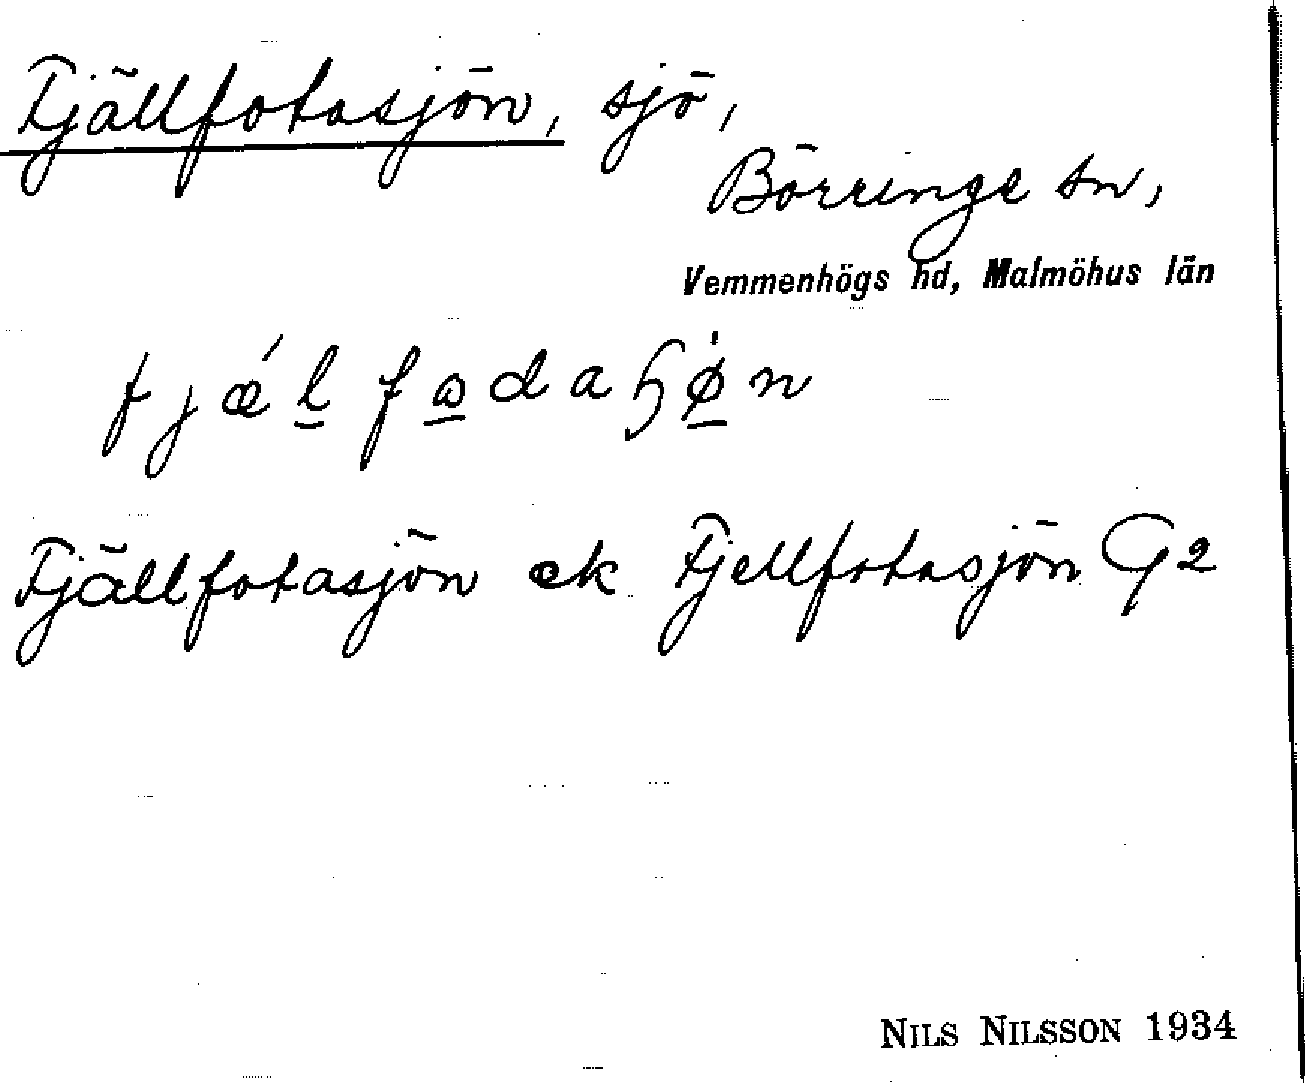 Fjällfotasjön, sjö,
Börringe sn,
Vemmenhögs hd, Malmöhus län
fjǽl̲fɷ̲daɧø̲̇n
Fjällfotasjön ek Fjellfotasjön G2
NILS NILSSON 1934